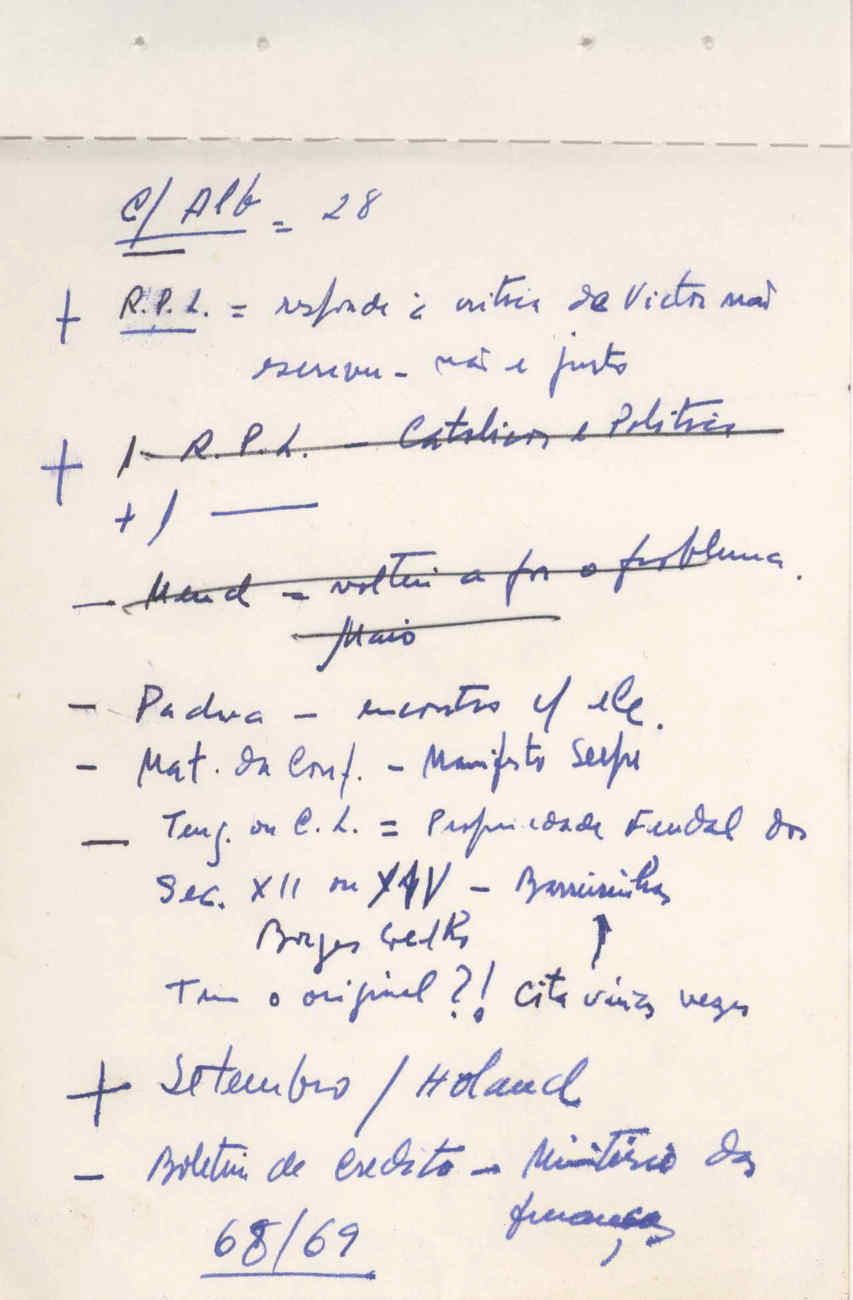 C/ Alb = 28
+ R.P.L. = responde à critica de Victor não
escreveu - não é justo
+ 1- R.P.L. - Católicos e Politica
+ 1 —
- Mend = voltei a pôr o problema.
Maio
- Padua - encontro c/ ele.
- Mat. da Conf. - Manifesto
- Teng. ou C.L. = Propriedade Feudal dos
Sec. XII ou XIV - Barreirinhas
Borges Coelho
Tem o original ?! Cita várias vezes
+ Setembro / Holand
- Boletim de Credito - Ministério das
finanças
68/69